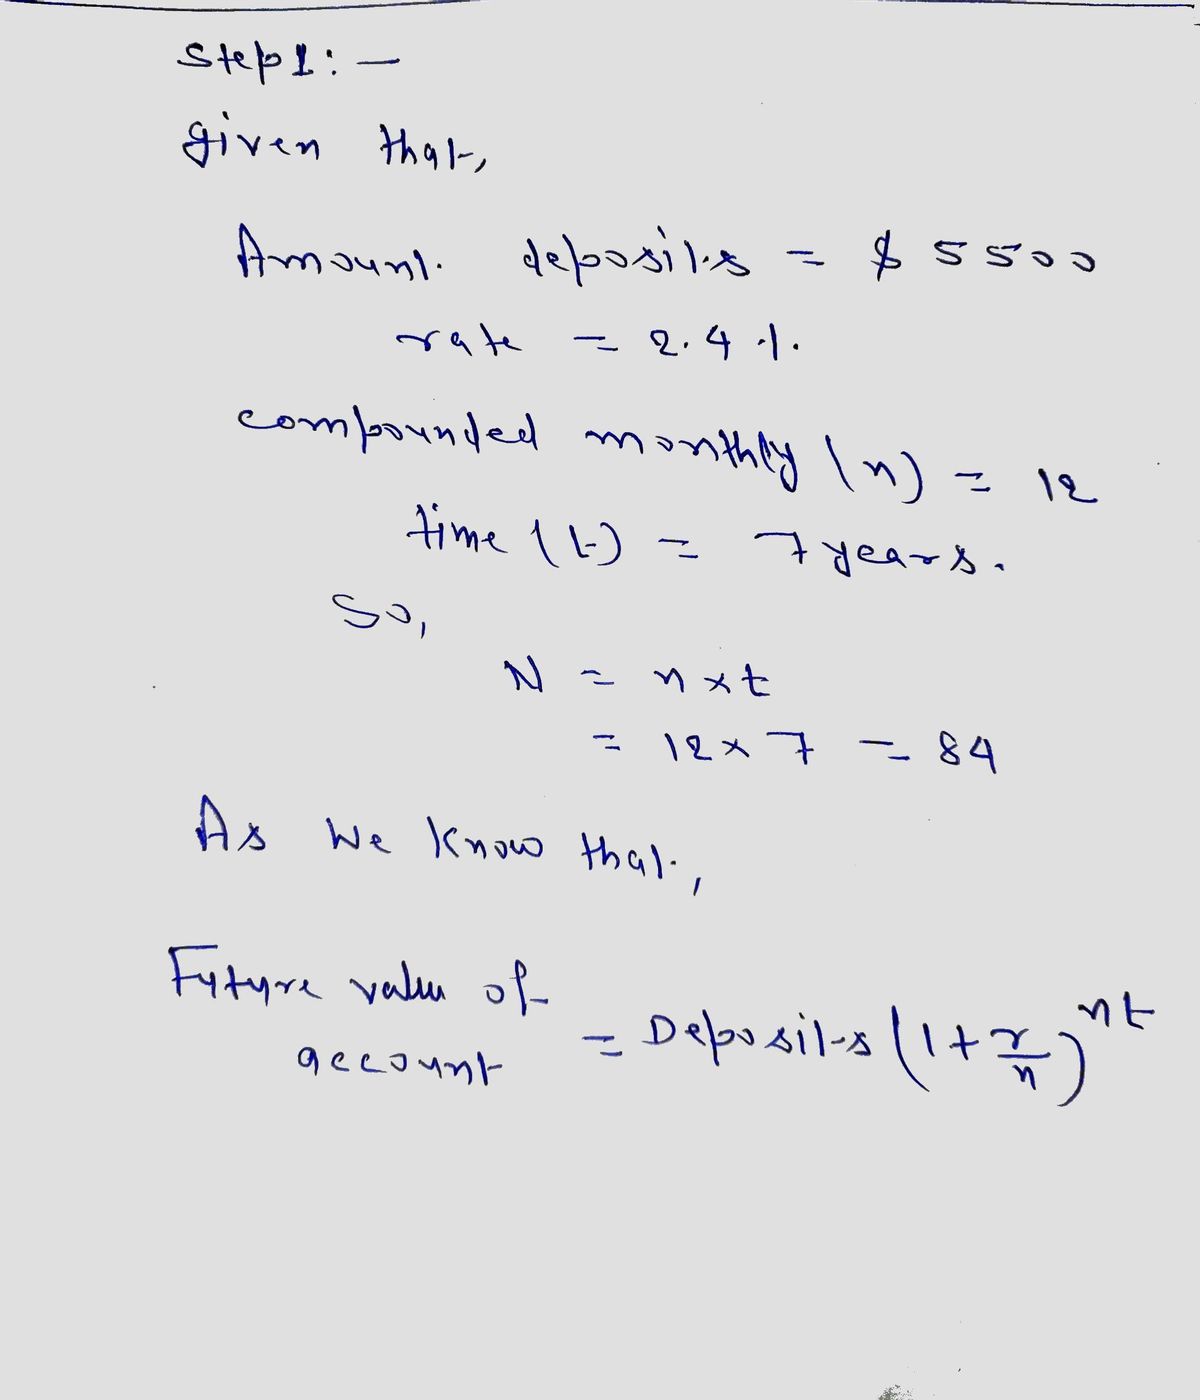 Step 1: —
given that,
Amount deposits = $ 5500
rate = 2.4 %.
compounded monthly (n) = 12
time (t) = 7 years.
So,
N = n × t
= 12 × 7 = 84
As We Know that,
Future value of
account = Deposits (1 + r/n)^nt